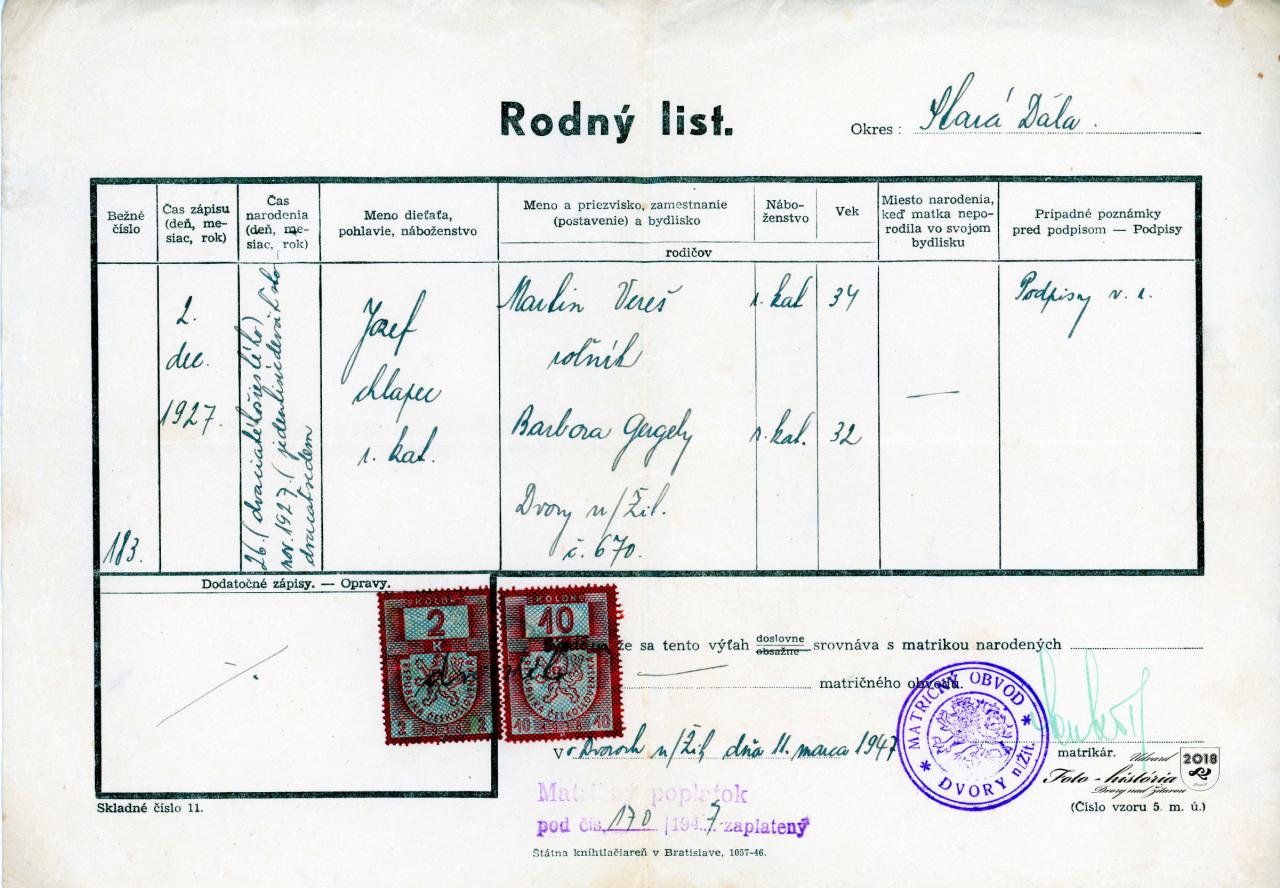 Rodný list.
Okres : Stará Ďala.
Bežné číslo
Čas zápisu (deň, me-
siac, rok)
Čas narodenia (deň, me-
siac, rok)
Meno dieťaťa,
pohlavie, náboženstvo
Meno a priezvisko, zamestnanie
(postavenie) a bydlisko
Nábo-
ženstvo
Vek
rodičov
Miesto narodenia,
keď matka nepo-
rodila vo svojom
bydlisku
Prípadné poznámky
pred podpisom — Podpisy
183.
2.
dec.
1927.
26. (dvaciatehošiesteho)
nov. 1927. (jedentisícdeväťsto-
dvacaťsedem
Jozef
chlapec
r. kat.
Martin Vereš
roľník
Barbora Gergely
Dvory n/Žit.
č. 670.
r. kat
34
r. kat.
32
—
Podpisy v. r.
Dodatočné zápisy. — Opravy.
KOLOK
2
K
2
2
KOLOK
10
10
10
že sa tento výťah doslovne obsažne srovnáva s matrikou narodených
matričného obvodu.
V Dvoroch n/Žit dňa 11. marca 1947
MATRIČNÝ OBVOD
* DVORY n/Žit. *
matrikár.
Udvard
Foto - história
Dvory nad Žitavou
2018
(Číslo vzoru 5. m. ú.)
Skladné číslo 11.
Matričný poplatok
pod čís. 170 /1947. zaplatený
Štátna kníhtlačiareň v Bratislave, 1057-46.